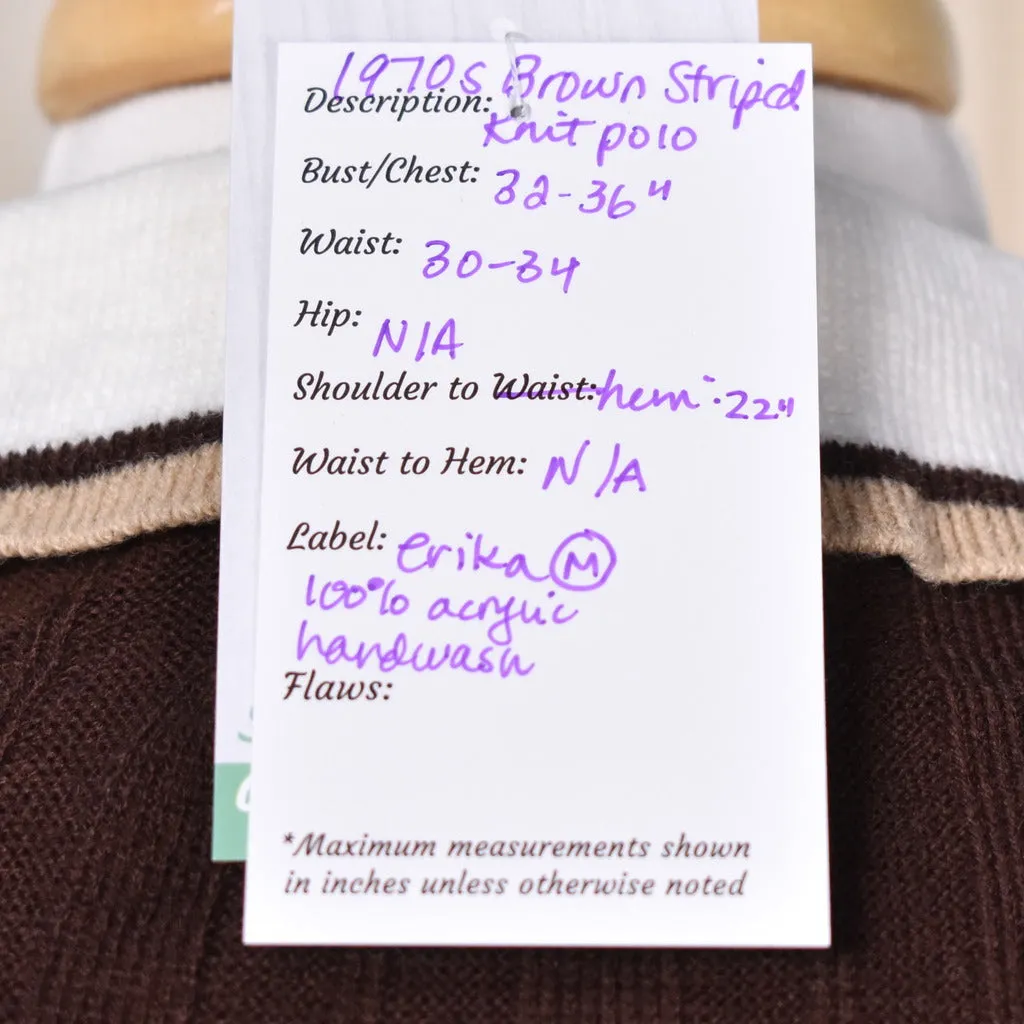 Description: 1970s Brown Striped
Knit polo
Bust/Chest: 32-36"
Waist: 30-34
Hip: N/A
Shoulder to Waist: hem: 22"
Waist to Hem: N/A
Label: erika M
100% acrylic
handwash
Flaws:
*Maximum measurements shown
in inches unless otherwise noted